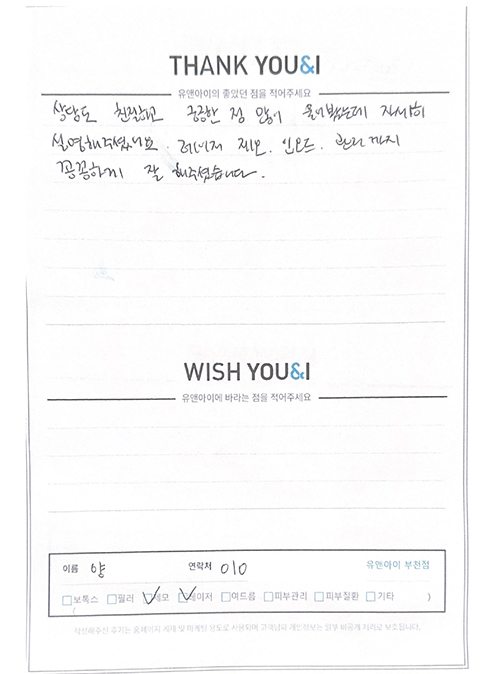 THANK YOU&I
유앤아이의 좋았던 점을 적어주세요
상담도 친절하고 궁금한 점 많이 물어봤는데 자세히
설명해주셨어요. 레이저 제모, 인모드, 관리까지
꼼꼼하게 잘 해주셨습니다.
WISH YOU&I
유앤아이에 바라는 점을 적어주세요
이름 양 연락처 010 유앤아이 부천점
보톡스 필러 제모 레이저 여드름 피부관리 피부질환 기타 )
작성해주신 후기는 홈페이지 게재 및 마케팅 용도로 사용되며 고객님의 개인정보는 일부 비공개 처리로 보호됩니다.